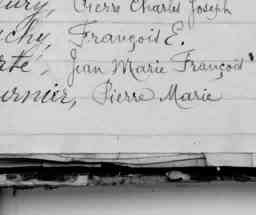 ury, Pierre Charles Joseph
chy, François E.
rté, Jean Marie François
urnier, Pierre Marie